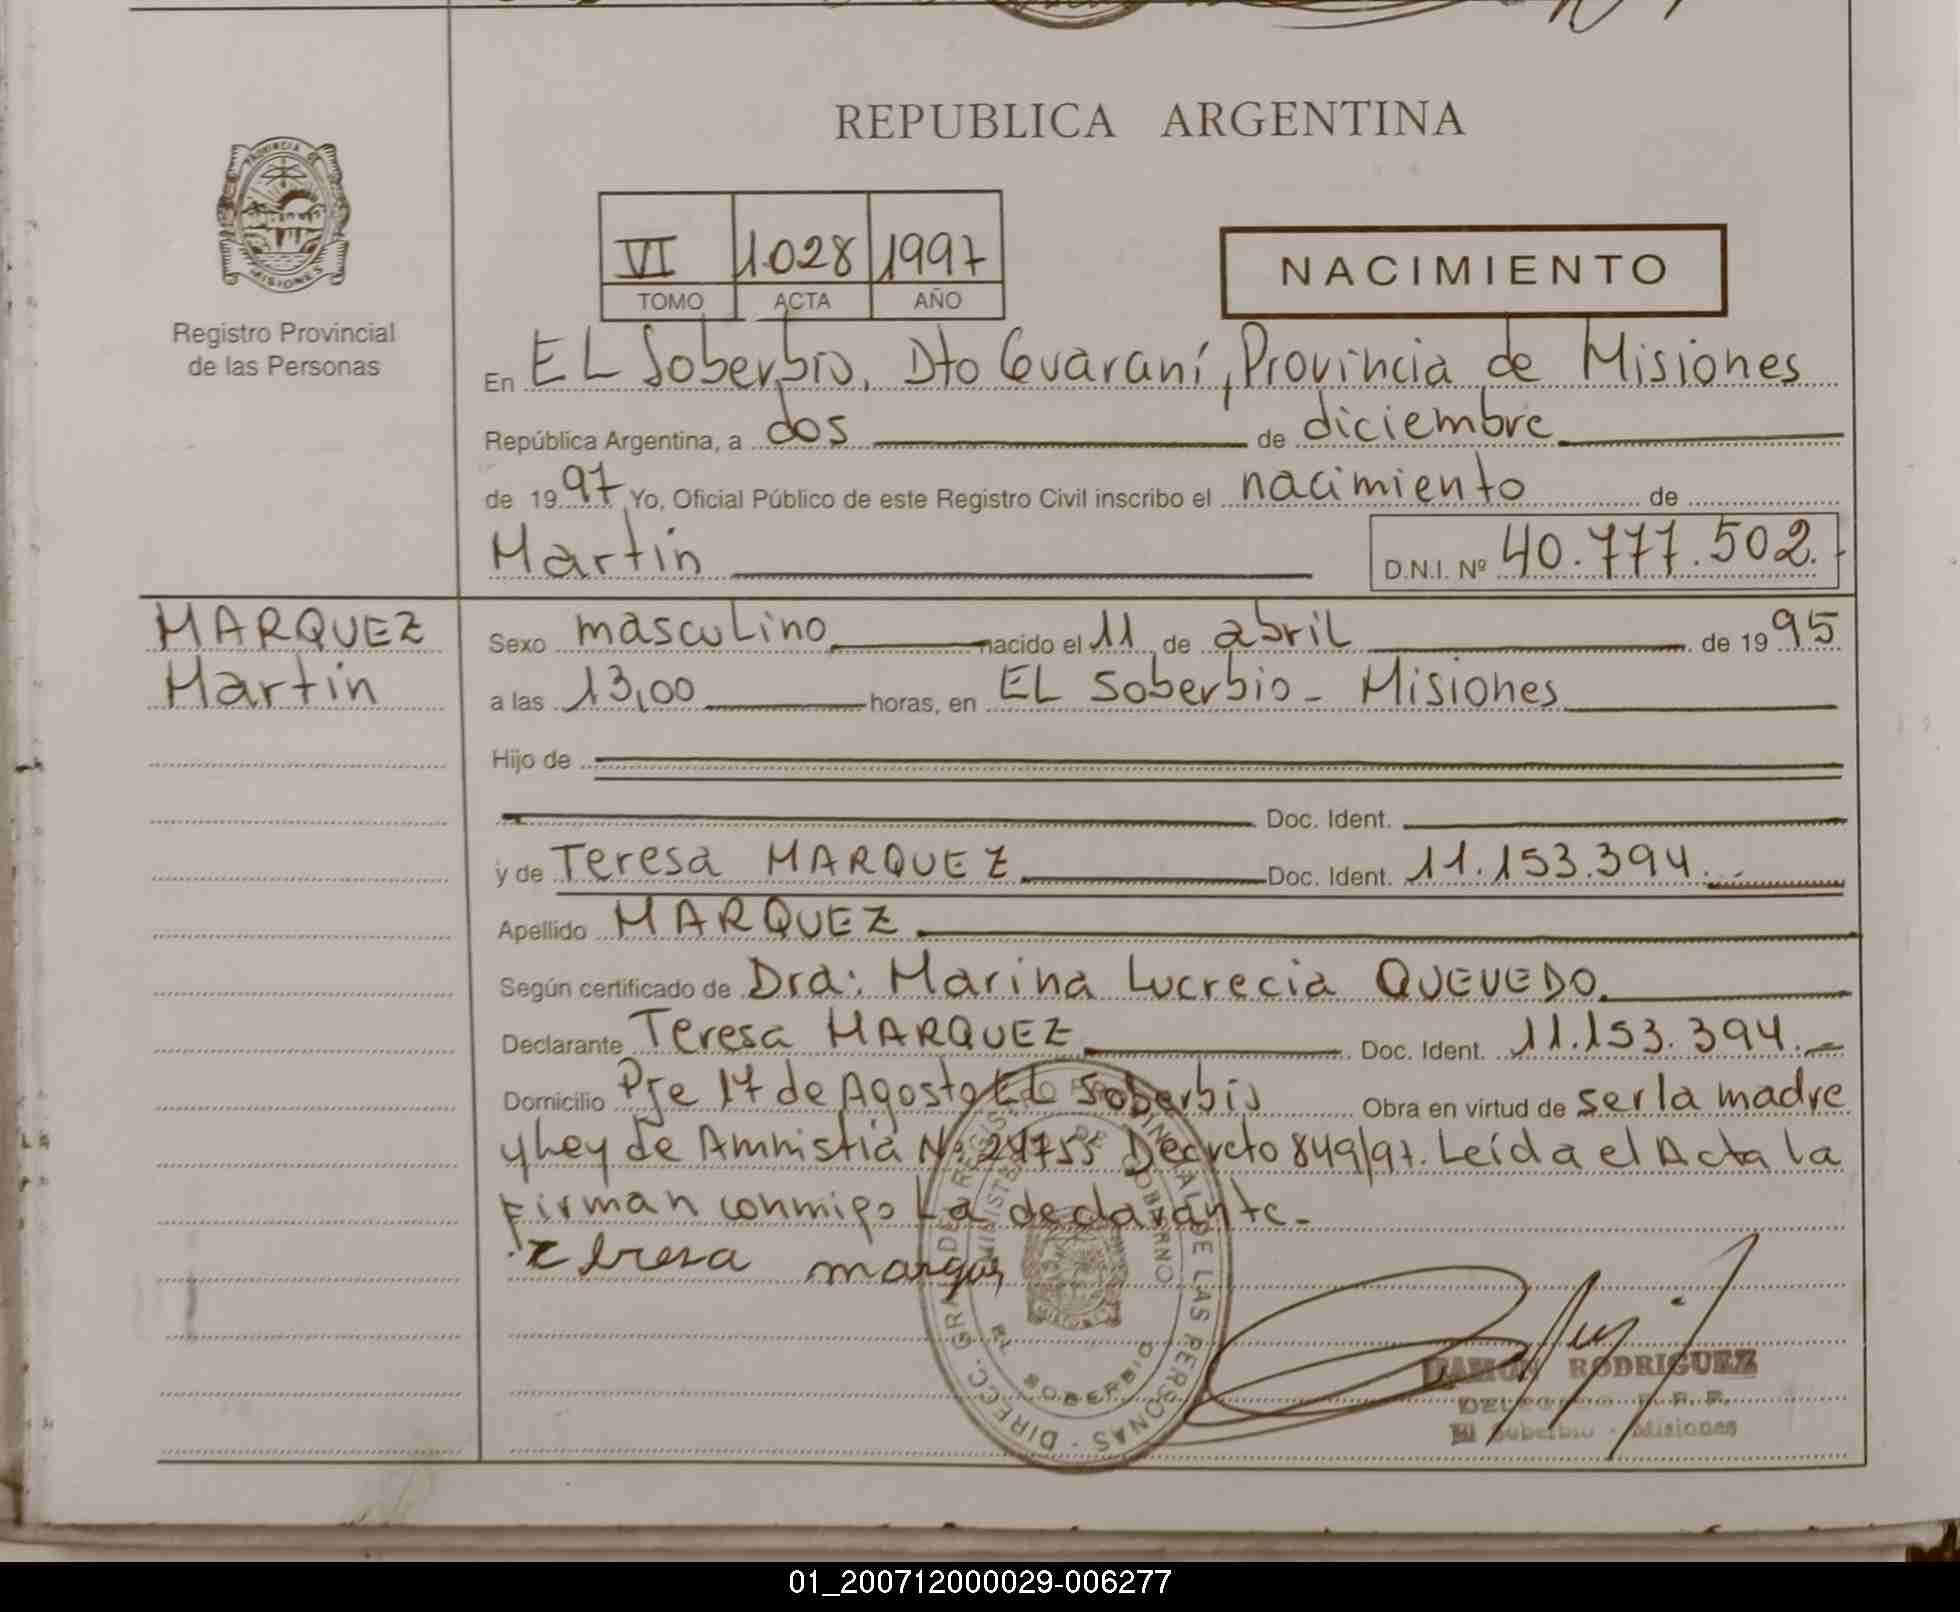 REPUBLICA ARGENTINA
PROVINCIA DE MISIONES
Registro Provincial
de las Personas
VI 1028 1997
TOMO ACTA AÑO
NACIMIENTO
En EL Soberbio, Dto Guaraní, Provincia de Misiones
República Argentina, a dos de diciembre
de 1997 Yo, Oficial Público de este Registro Civil inscribo el nacimiento de
Martin D.N.I. Nº 40.777.502.
MARQUEZ
Martin
Sexo masculino nacido el 11 de abril de 1995
a las 13,00 horas, en EL Soberbio - Misiones
Hijo de
Doc. Ident.
y de Teresa MARQUEZ Doc. Ident. 11.153.394.
Apellido MARQUEZ
Según certificado de Dra: Marina Lucrecia QUEVEDO.
Declarante Teresa MARQUEZ Doc. Ident. 11.153.394.
Domicilio Pje 17 de Agosto El Soberbio Obra en virtud de ser la madre
y Ley de Amnistia Nº 24755 Decreto 849/97. Leída el Acta la
Firman conmigo La declarante.-
teresa marques
DIRECC. GRAL DEL REGISTRO PROVINCIAL DE LAS PERSONAS
MINISTERIO DE GOBIERNO
EL SOBERBIO
RAMON RODRIGUEZ
El Soberbio - Misiones
01_200712000029-006277